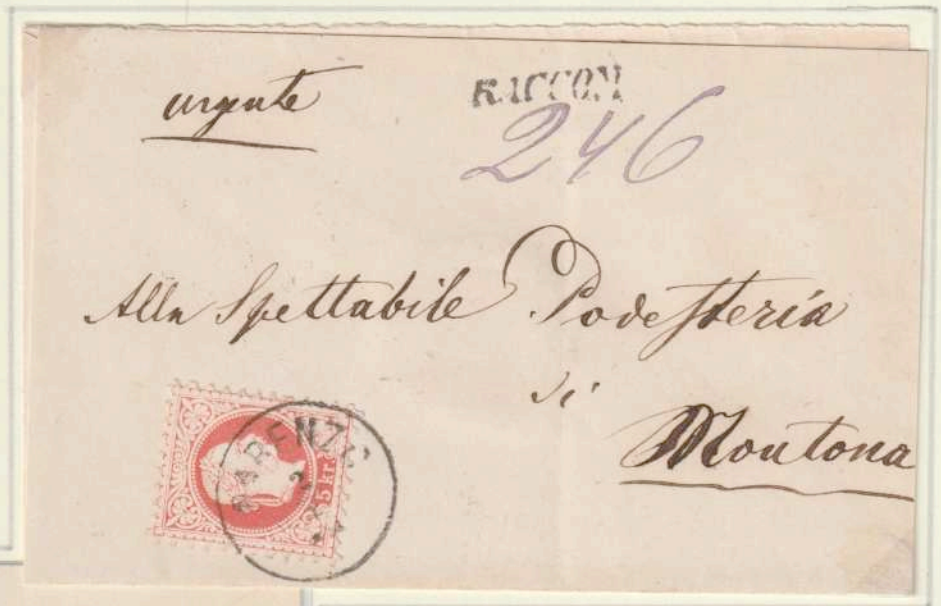 urgente
RACCOM
246
Alla Spettabile Podesteria
di
Montona
PARENZO
5 kr.